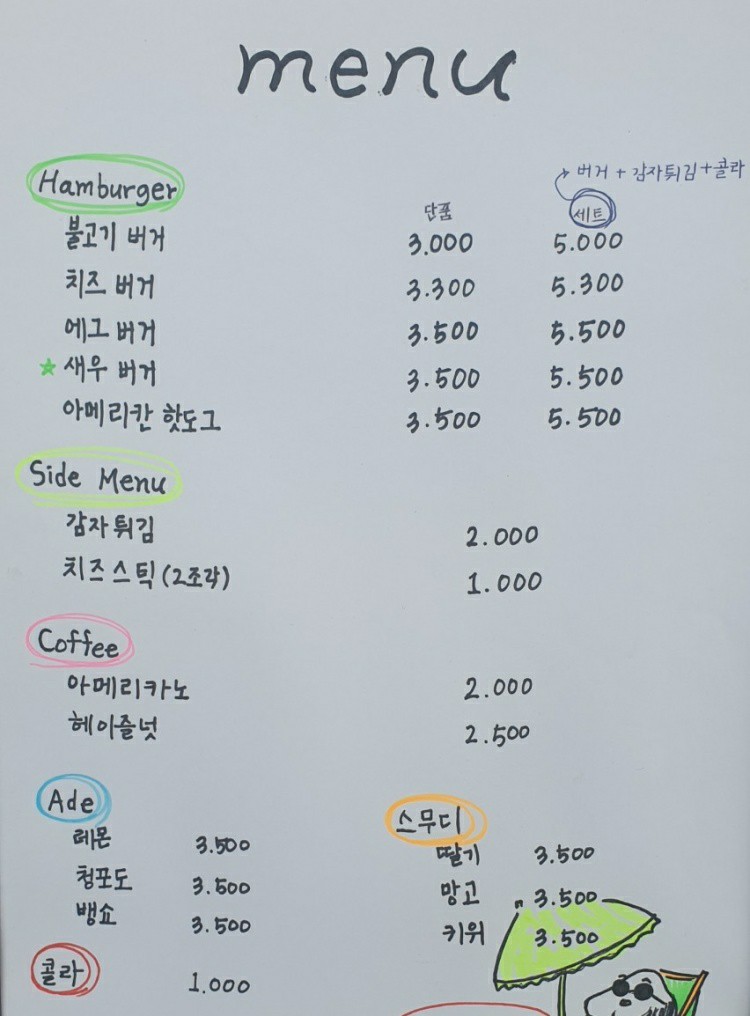 menu
→ 버거 + 감자튀김 + 콜라
Hamburger 단품 세트
불고기 버거 3.000 5.000
치즈 버거 3.300 5.300
에그 버거 3.500 5.500
☆ 새우 버거 3.500 5.500
아메리칸 핫도그 3.500 5.500
Side Menu
감자튀김 2.000
치즈스틱 (2조각) 1.000
Coffee
아메리카노 2.000
헤이즐넛 2.500
Ade
레몬 3.500
청포도 3.500
뱅쇼 3.500
콜라 1.000
스무디
딸기 3.500
망고 3.500
키위 3.500